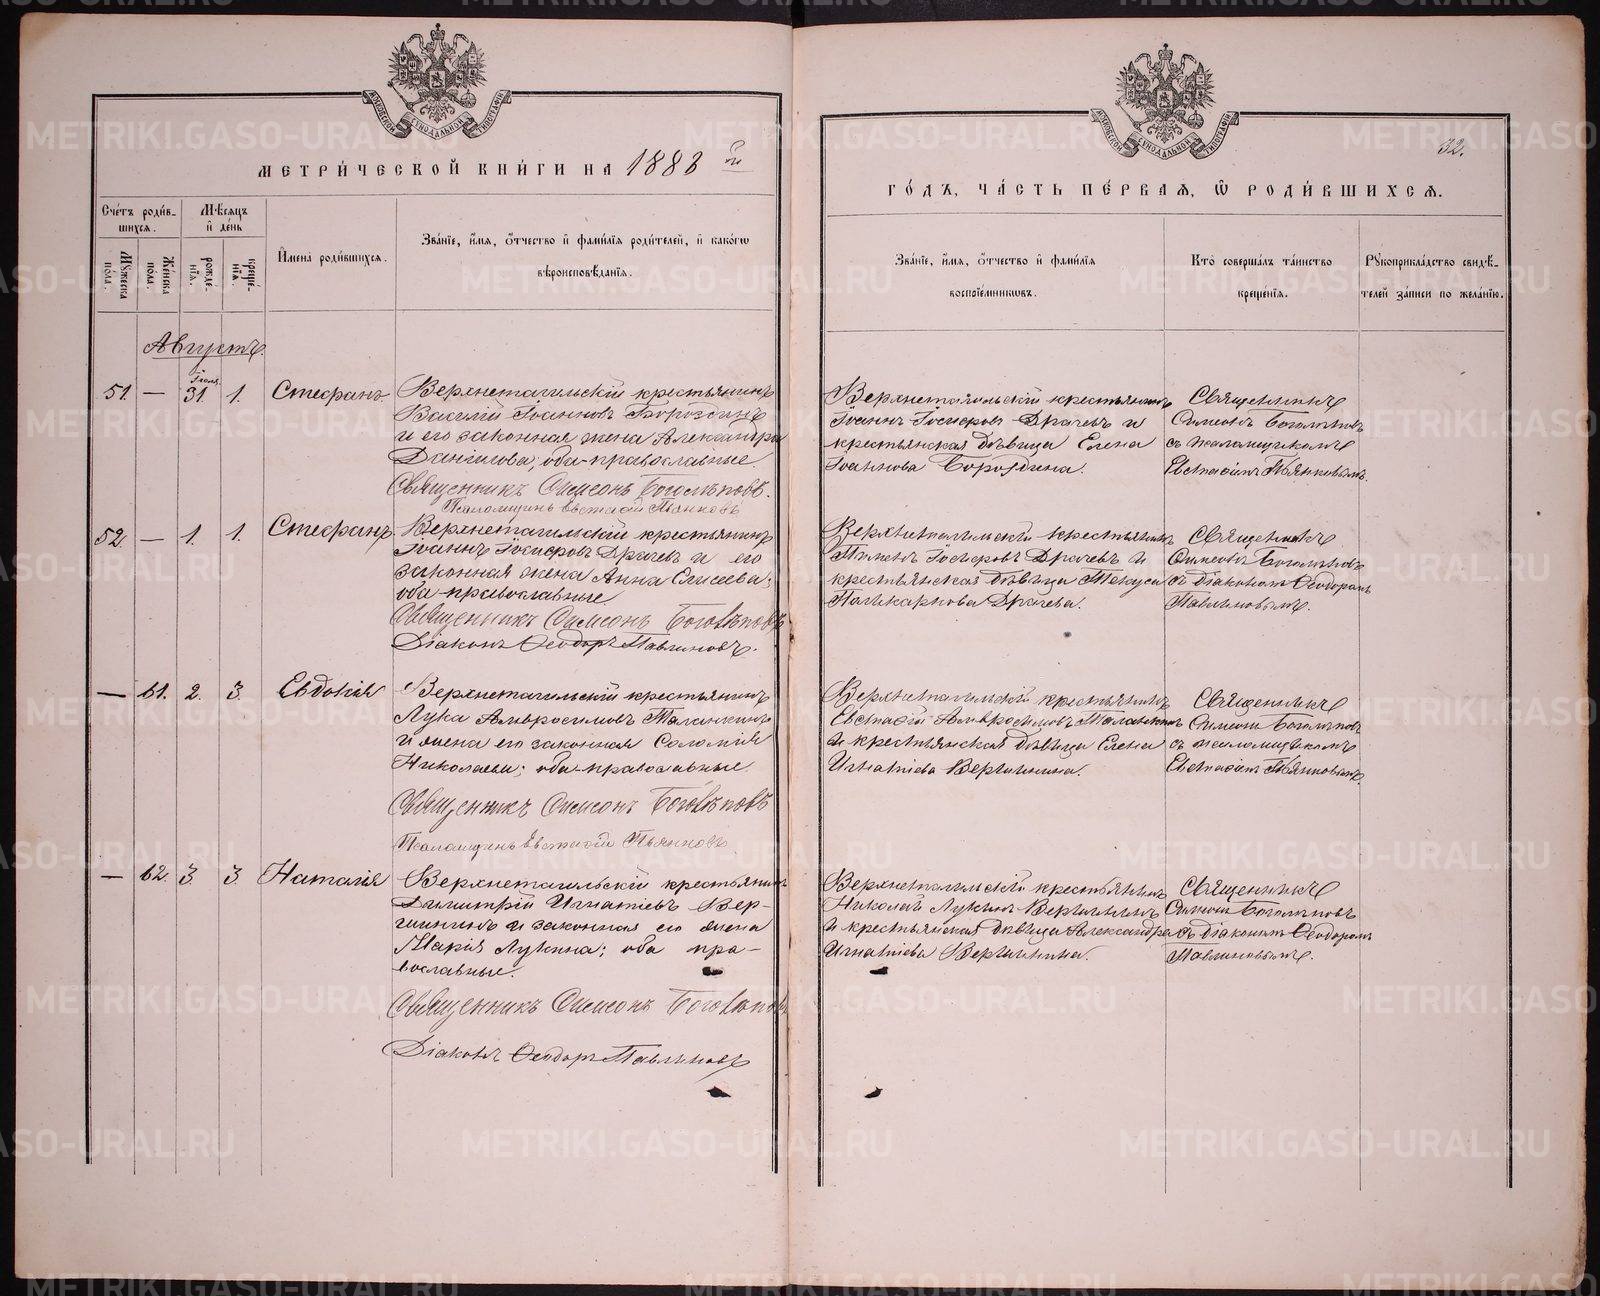 МЕТРИ́ЧЕСКОЙ КНИ́ГИ НА 1883 й
Сче́тъ роди́в-
шихсѧ.
Мѣ́сѧцъ
и҆ де́нь
Мꙋ́жеска
по́ла.
Же́нска
по́ла.
рожде́-
нїѧ.
креще́-
нїѧ.
И҆мена̀ роди́вшихсѧ.
Зва́нїе, и҆́мѧ, ѻ҆́тчество и҆ фамилїѧ роди́телей, и҆ како́гѡ
вѣроисповѣ́данїѧ.
Августъ.
51. — Іюля 31. 1. Стефанъ.
Верхнетагильскій крестьянинъ
Василій Іоанновъ Бороздинъ
и его законная жена Александра
Даніилова; оба православные.
Священникъ Симеонъ Боголѣповъ.
Псаломщикъ Евстафій Пьянковъ
52. — 1. 1. Стефанъ.
Верхнетагильскій крестьянинъ
Іоаннъ Іосифовъ Драчевъ и его
законная жена Анна Елисеева;
оба православные.
Священникъ Симеонъ Боголѣповъ
Діаконъ Ѳеодоръ Павлиновъ.
— 61. 2. 3. Евдокія
Верхнетагильскій крестьянинъ
Лука Амвросимовъ Маланкинъ
и жена его законная Соломія
Николаева; оба православные.
Священникъ Симеонъ Боголѣповъ
Псаломщикъ Евстафій Пьянковъ.
— 62. 3. 3. Наталія
Верхнетагильскій крестьянинъ
Димитрій Игнатіевъ Вер-
шининъ и законная его жена
Марія Лукина; оба пра-
вославные.
Священникъ Симеонъ Боголѣповъ
Діаконъ Ѳеодоръ Павлиновъ
32.
ГО́ДЪ, ЧА́СТЬ ПЕ́РВАѦ, Ѡ҆ РОДИ́ВШИХСѦ.
Зва́нїе, и҆́мѧ, ѻ҆́тчество и҆ фамилїѧ
воспрїе́мникѡвъ.
Кто̀ соверша́лъ та́инство
креще́нїѧ.
Рꙋкоприкла́дство свидѣ́-
телей за́писи по жела́нїю.
Верхнетагильскій крестьянинъ
Іоаннъ Іосифовъ Драчевъ и
крестьянская дѣвица Елена
Іоаннова Бороздина.
Священникъ
Симеонъ Боголѣповъ
съ псаломщикомъ
Евстафіемъ Пьянковымъ.
Верхнетагильскій крестьянинъ
Пименъ Іосифовъ Драчевъ и
крестьянская дѣвица Текуса
Поликарпова Драчева.
Священникъ
Симеонъ Боголѣповъ
съ діакономъ Ѳеодоромъ
Павлиновымъ.
Верхнетагильскій крестьянинъ
Евстафій Амвросимовъ Маланкинъ
и крестьянская дѣвица Елена
Игнатіева Вершинина.
Священникъ
Симеонъ Боголѣповъ
съ псаломщикомъ
Евстафіемъ Пьянковымъ.
Верхнетагильскій крестьянинъ
Николай Лукинъ Вершининъ
и крестьянская дѣвица Александра
Игнатіева Вершинина.
Священникъ
Симеонъ Боголѣповъ
съ діакономъ Ѳеодоромъ
Павлиновымъ.
METRIKI.GASO-URAL.RU